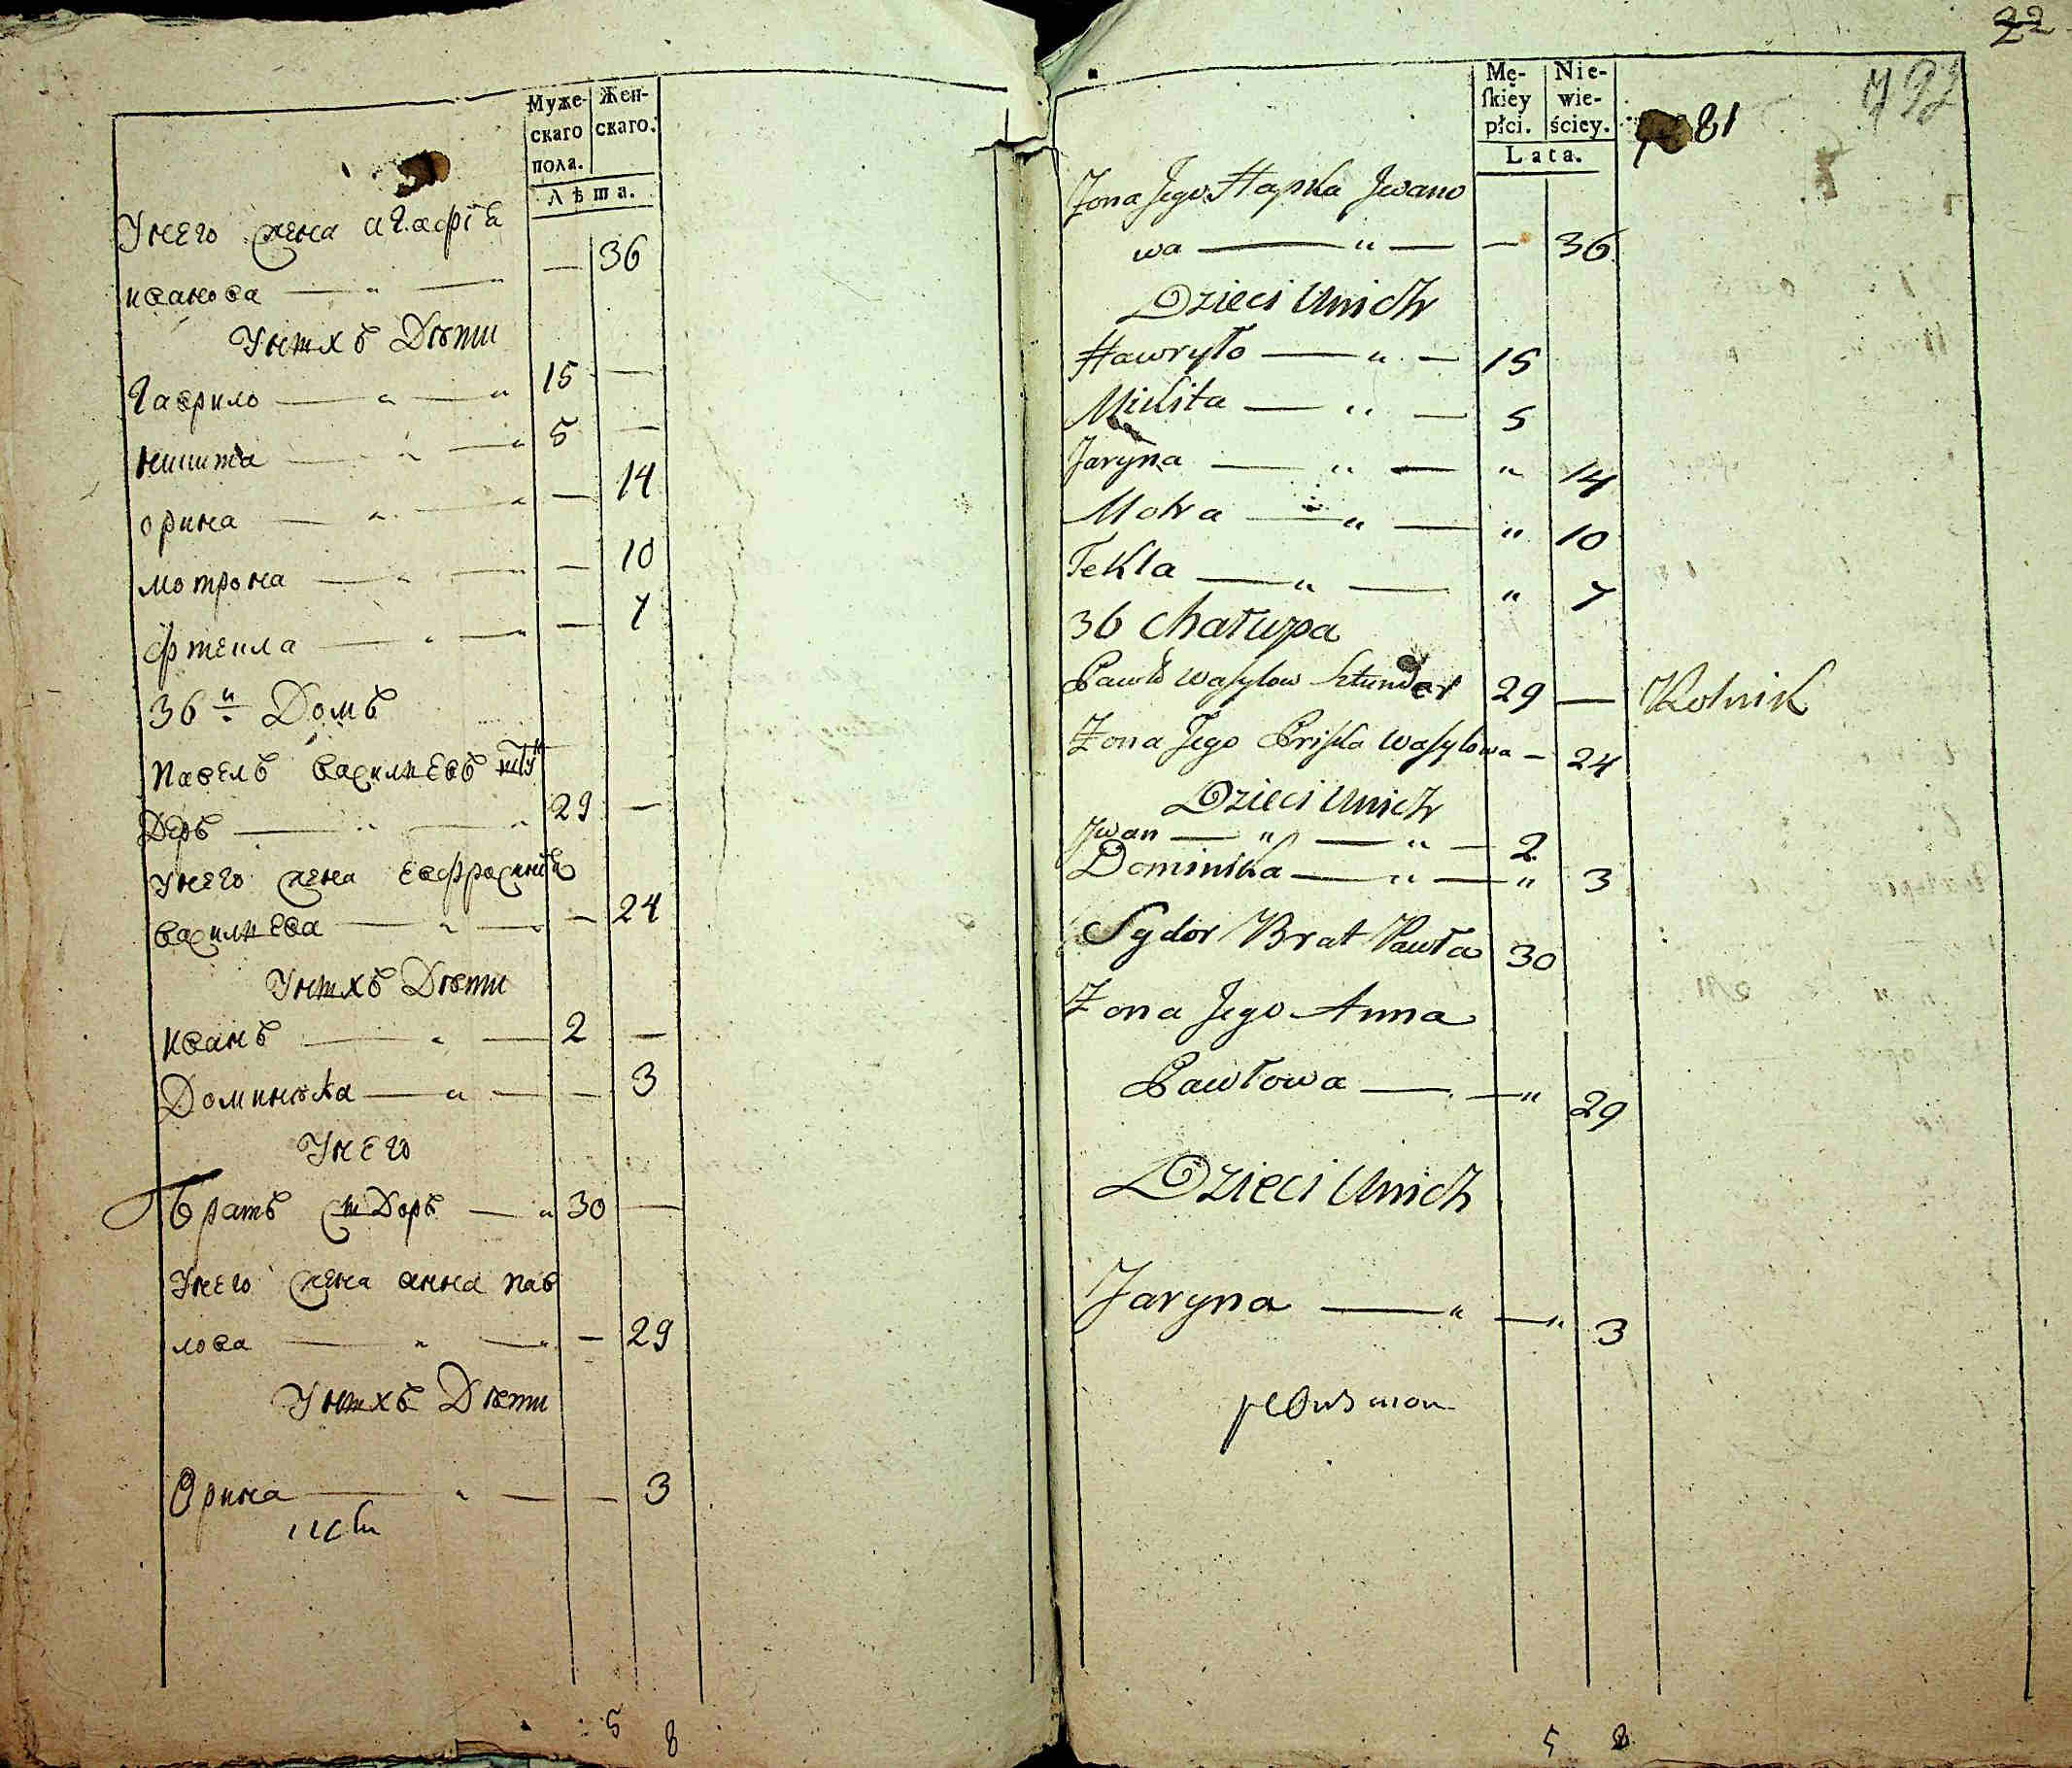 Муже-
скаго
пола.
Жен-
скаго.
Лѣта.
У него жена Агафіа
иванова — 36
У нихъ Дѣти
Гаврило 15 —
никита 5 —
орина — 14
мотрона — 10
фтекла — 7
36й Домъ
Павелъ васильевъ штун
Деръ 29 —
У него жена Евфросиніа
васильева — 24
У нихъ Дѣти
иванъ 2 —
Доминѣка — 3
У него
братъ сидоръ 30 —
У него жена анна пав
лова — 29
У нихъ Дѣти
Орина — 3
5 8
22
Mę-
skiey
płci.
Nie-
wie-
ściey.
Lata.
81
Żona Jego Hapka Jwano
wa — 36
Dzieci Unich
Hawryło 15
Mikita 5
Jaryna " 14
Motra " 10
Tekla " 7
36 Chałupa
Pawło Wasylow Sztunder 29 — Rolnik
Żona Jego Priska Wasylowa — 24
Dzieci Unich
Jwan 2
Dominika " 3
Sydor Brat Pawła 30
Żona Jego Anna
Pawłowa " 29
Dzieci Unich
Jaryna " 3
5 8